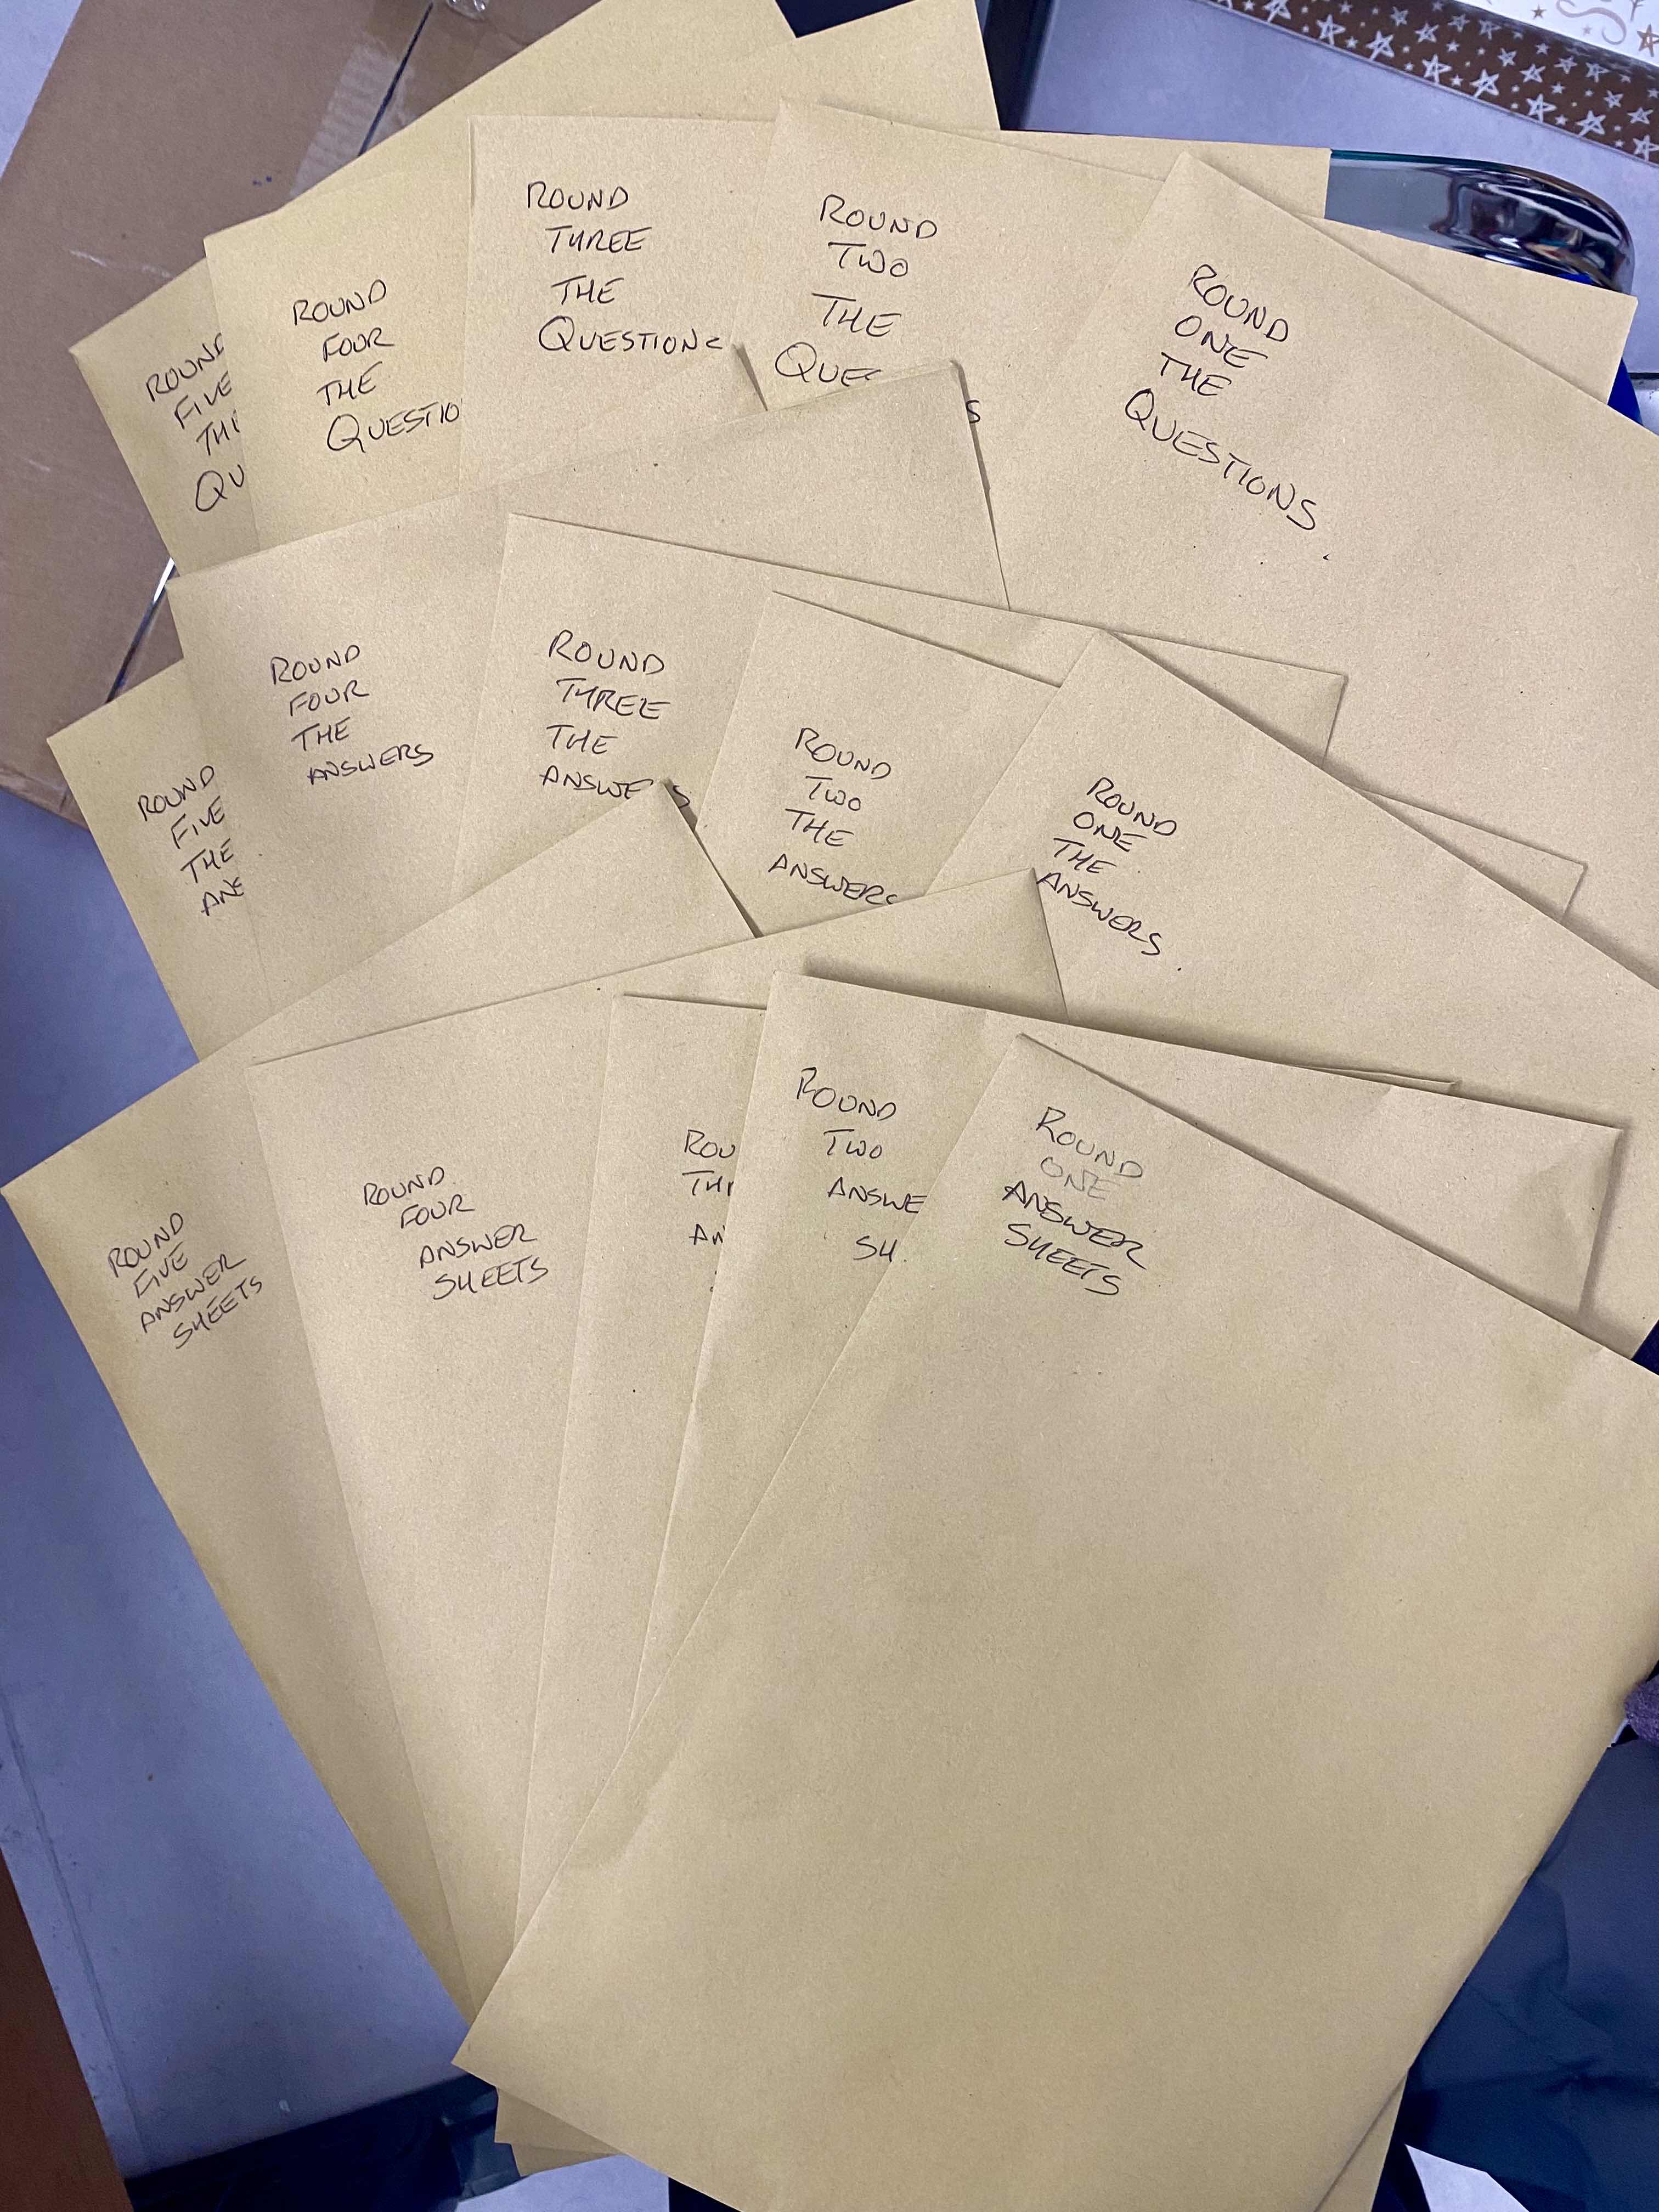 ROUND
FIVE
QU
ROUND
FOUR
THE
QUESTIO
ROUND
THREE
THE
QUESTIONS
ROUND
TWO
THE
QUES
S
ROUND
ONE
THE
QUESTIONS.
ROUND
FIVE
THE
ANS
ROUND
FOUR
THE
ANSWERS
ROUND
THREE
THE
ANSWE S
ROUND
TWO
THE
ANSWERS
ROUND
ONE
THE
ANSWERS.
ROUND
FIVE
ANSWER
SHEETS
ROUND
FOUR
ANSWER
SHEETS
ROU
TH
AN
ROUND
TWO
ANSWE
SH
ROUND
ONE
ANSWER
SHEETS